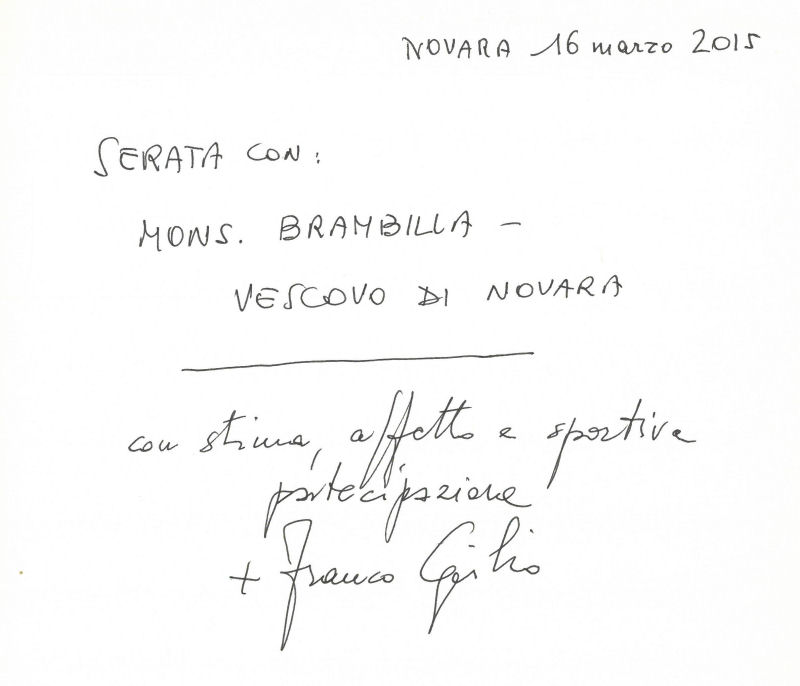 NOVARA 16 marzo 2015
SERATA CON:
MONS. BRAMBILLA -
VESCOVO DI NOVARA
con stima, affetto e sportiva
partecipazione
+ Franco Giulio